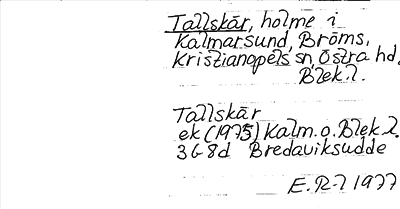 Tallskär, holme i
Kalmarsund, Bröms,
Kristianopels sn, Östra hd,
Blek.l.
Tallskär
ek (1975) Kalm.o.Blek.l.
3G8d Bredaviksudde
E.R-l 1977